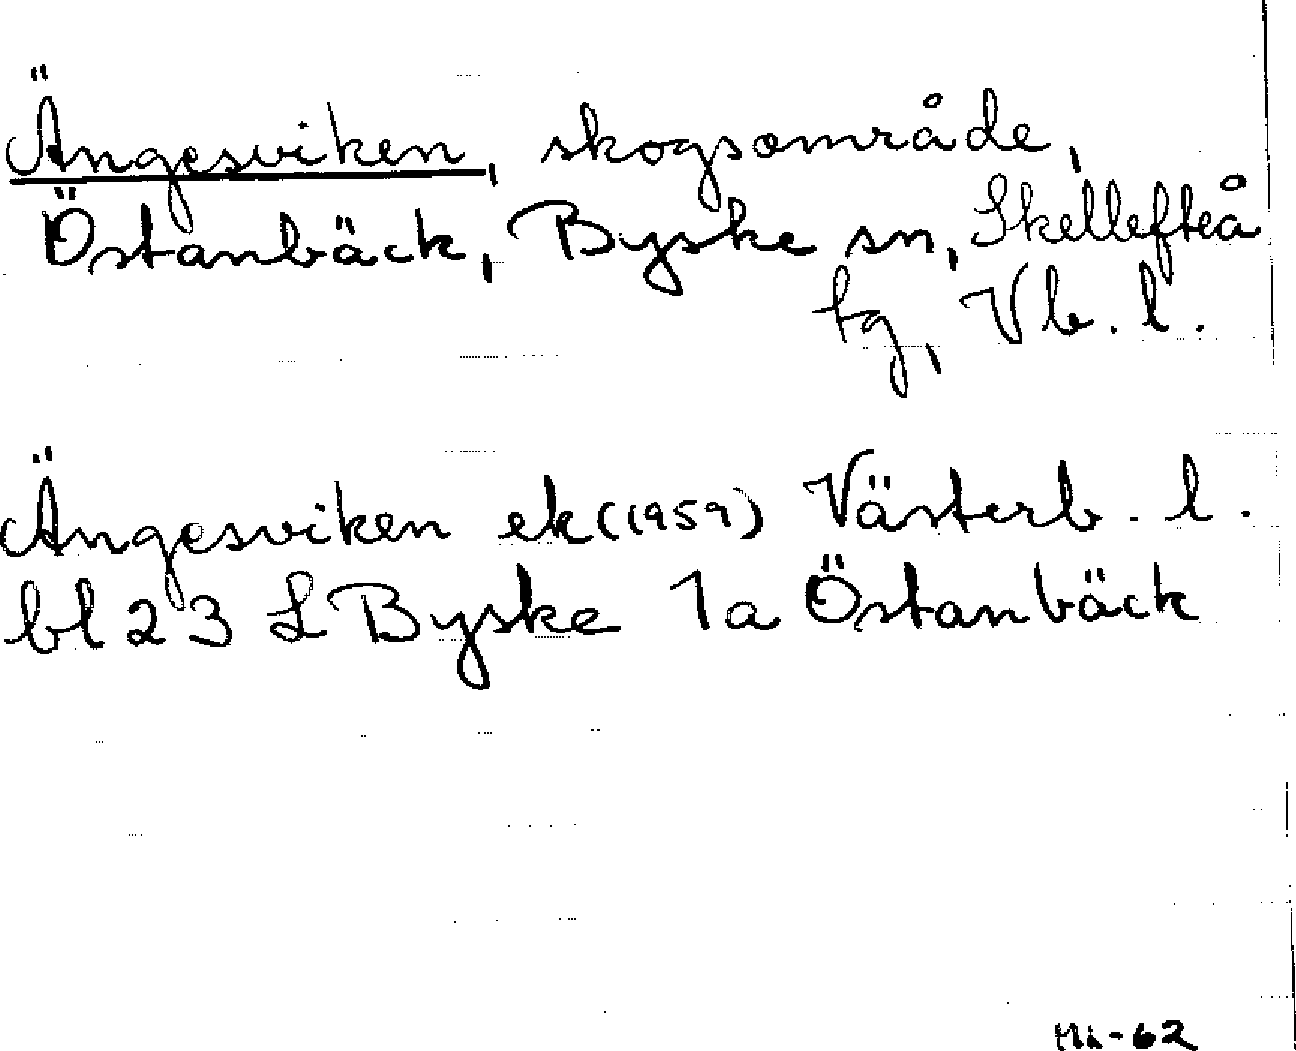 Ängesviken, skogsområde,
Östanbäck, Byske sn, Skellefteå
tg, Vb. l.
Ängesviken ek (1959) Västerb. l.
bl 23 L Byske 1a Östanbäck
-62